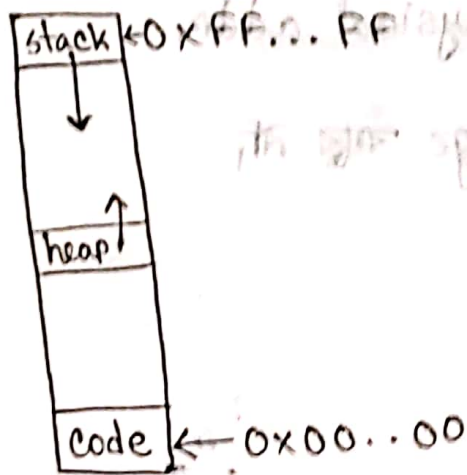 stack ←0xFF... FF
heap
code ← 0x00..00